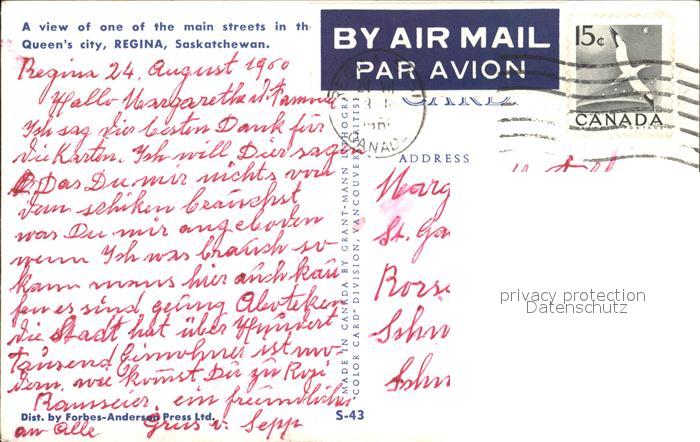 A view of one of the main streets in th
Queen's city, REGINA, Saskatchewan.
BY AIR MAIL
PAR AVION
15c
CANADA
Regina 24. August 1960
Hallo Margarethe u. Familie
Ich sag dier besten Dank für
die Karten. Ich will Dier sagen
Das Du mir nichts von
dem schiken brauchst
was Du mir angeboven
wenn Ich was brauch so
kann mans hier auch kau
fen es sind genug Aboteken
die Stadt hat über Hundert
Tausend Einwohner ist mo
dern. wie komst Du zu Rosi
Ramseier. ein freundlicher
an Alle Grus v. Sepp
Dist. by Forbes-Anderson Press Ltd.
S-43
MADE IN CANADA BY GRANT-MANN LITHOGRA
COLOR CARD DIVISION, VANCOUVER, BRITISH
ADDRESS
Marg
St. Ga
Rors
Schw
privacy protection
Datenschutz